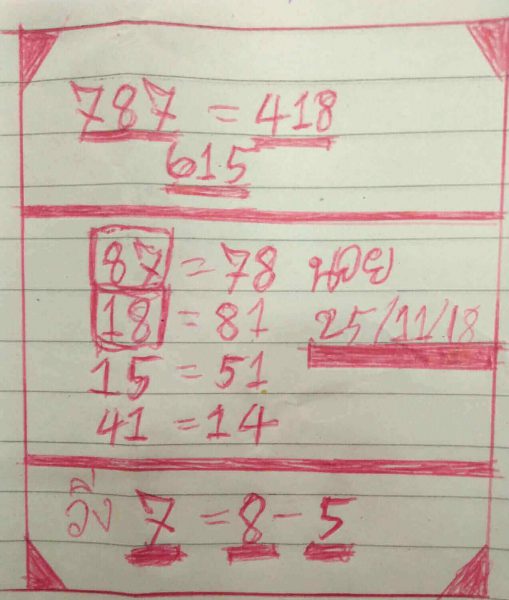 787 = 418
615
87 = 78 หวย
18 = 81 25/11/18
15 = 51
41 = 14
วิ่ง 7 = 8 - 5